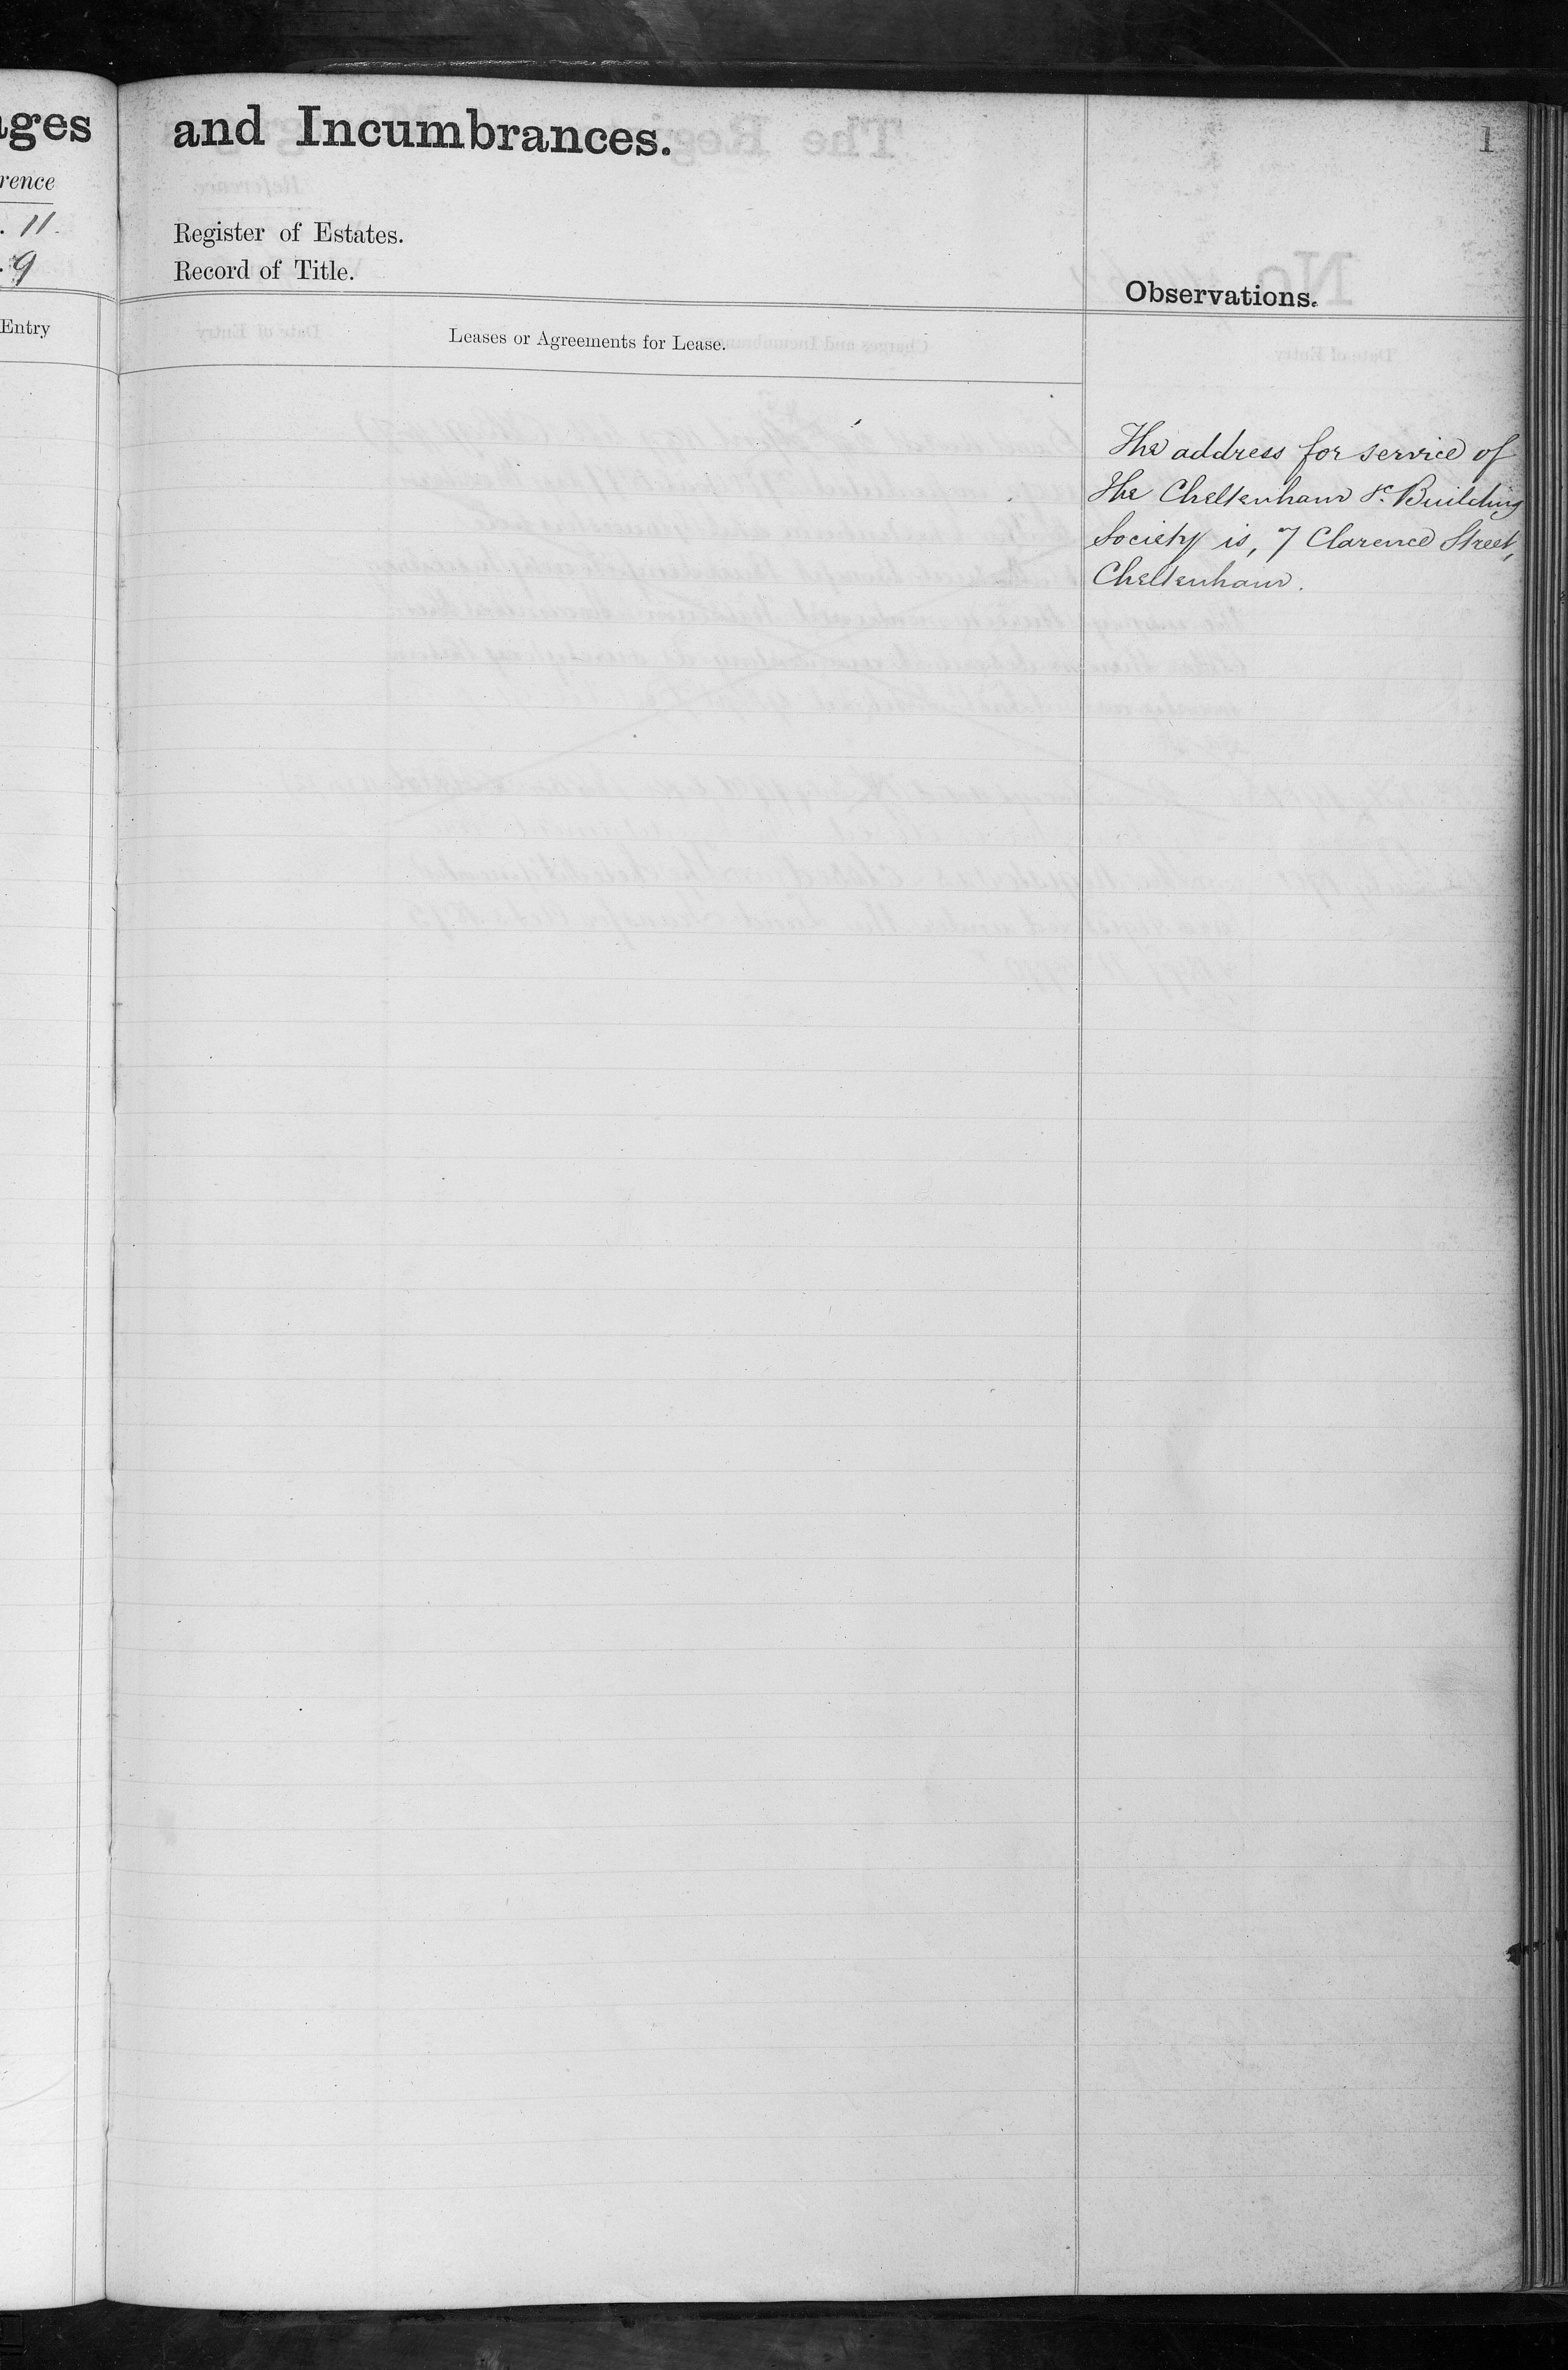 ages
rence
. 11.
. 9
Entry
and Incumbrances.
1
Register of Estates.
Record of Title.
Observations.
Leases or Agreements for Lease.
The address for service of
The Cheltenham &c. Building
Society is, 7 Clarence Street,
Cheltenham.